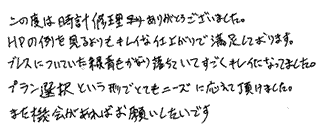 この度は時計修理ありがとうございました。
HPの例を見るよりもキレイな仕上がりで満足しております。
ブレスについていた緑青もかなり落ちていてすごくキレイになってました。
プラン選択という形でとてもニーズに応えて頂けました。
また機会があればお願いしたいです